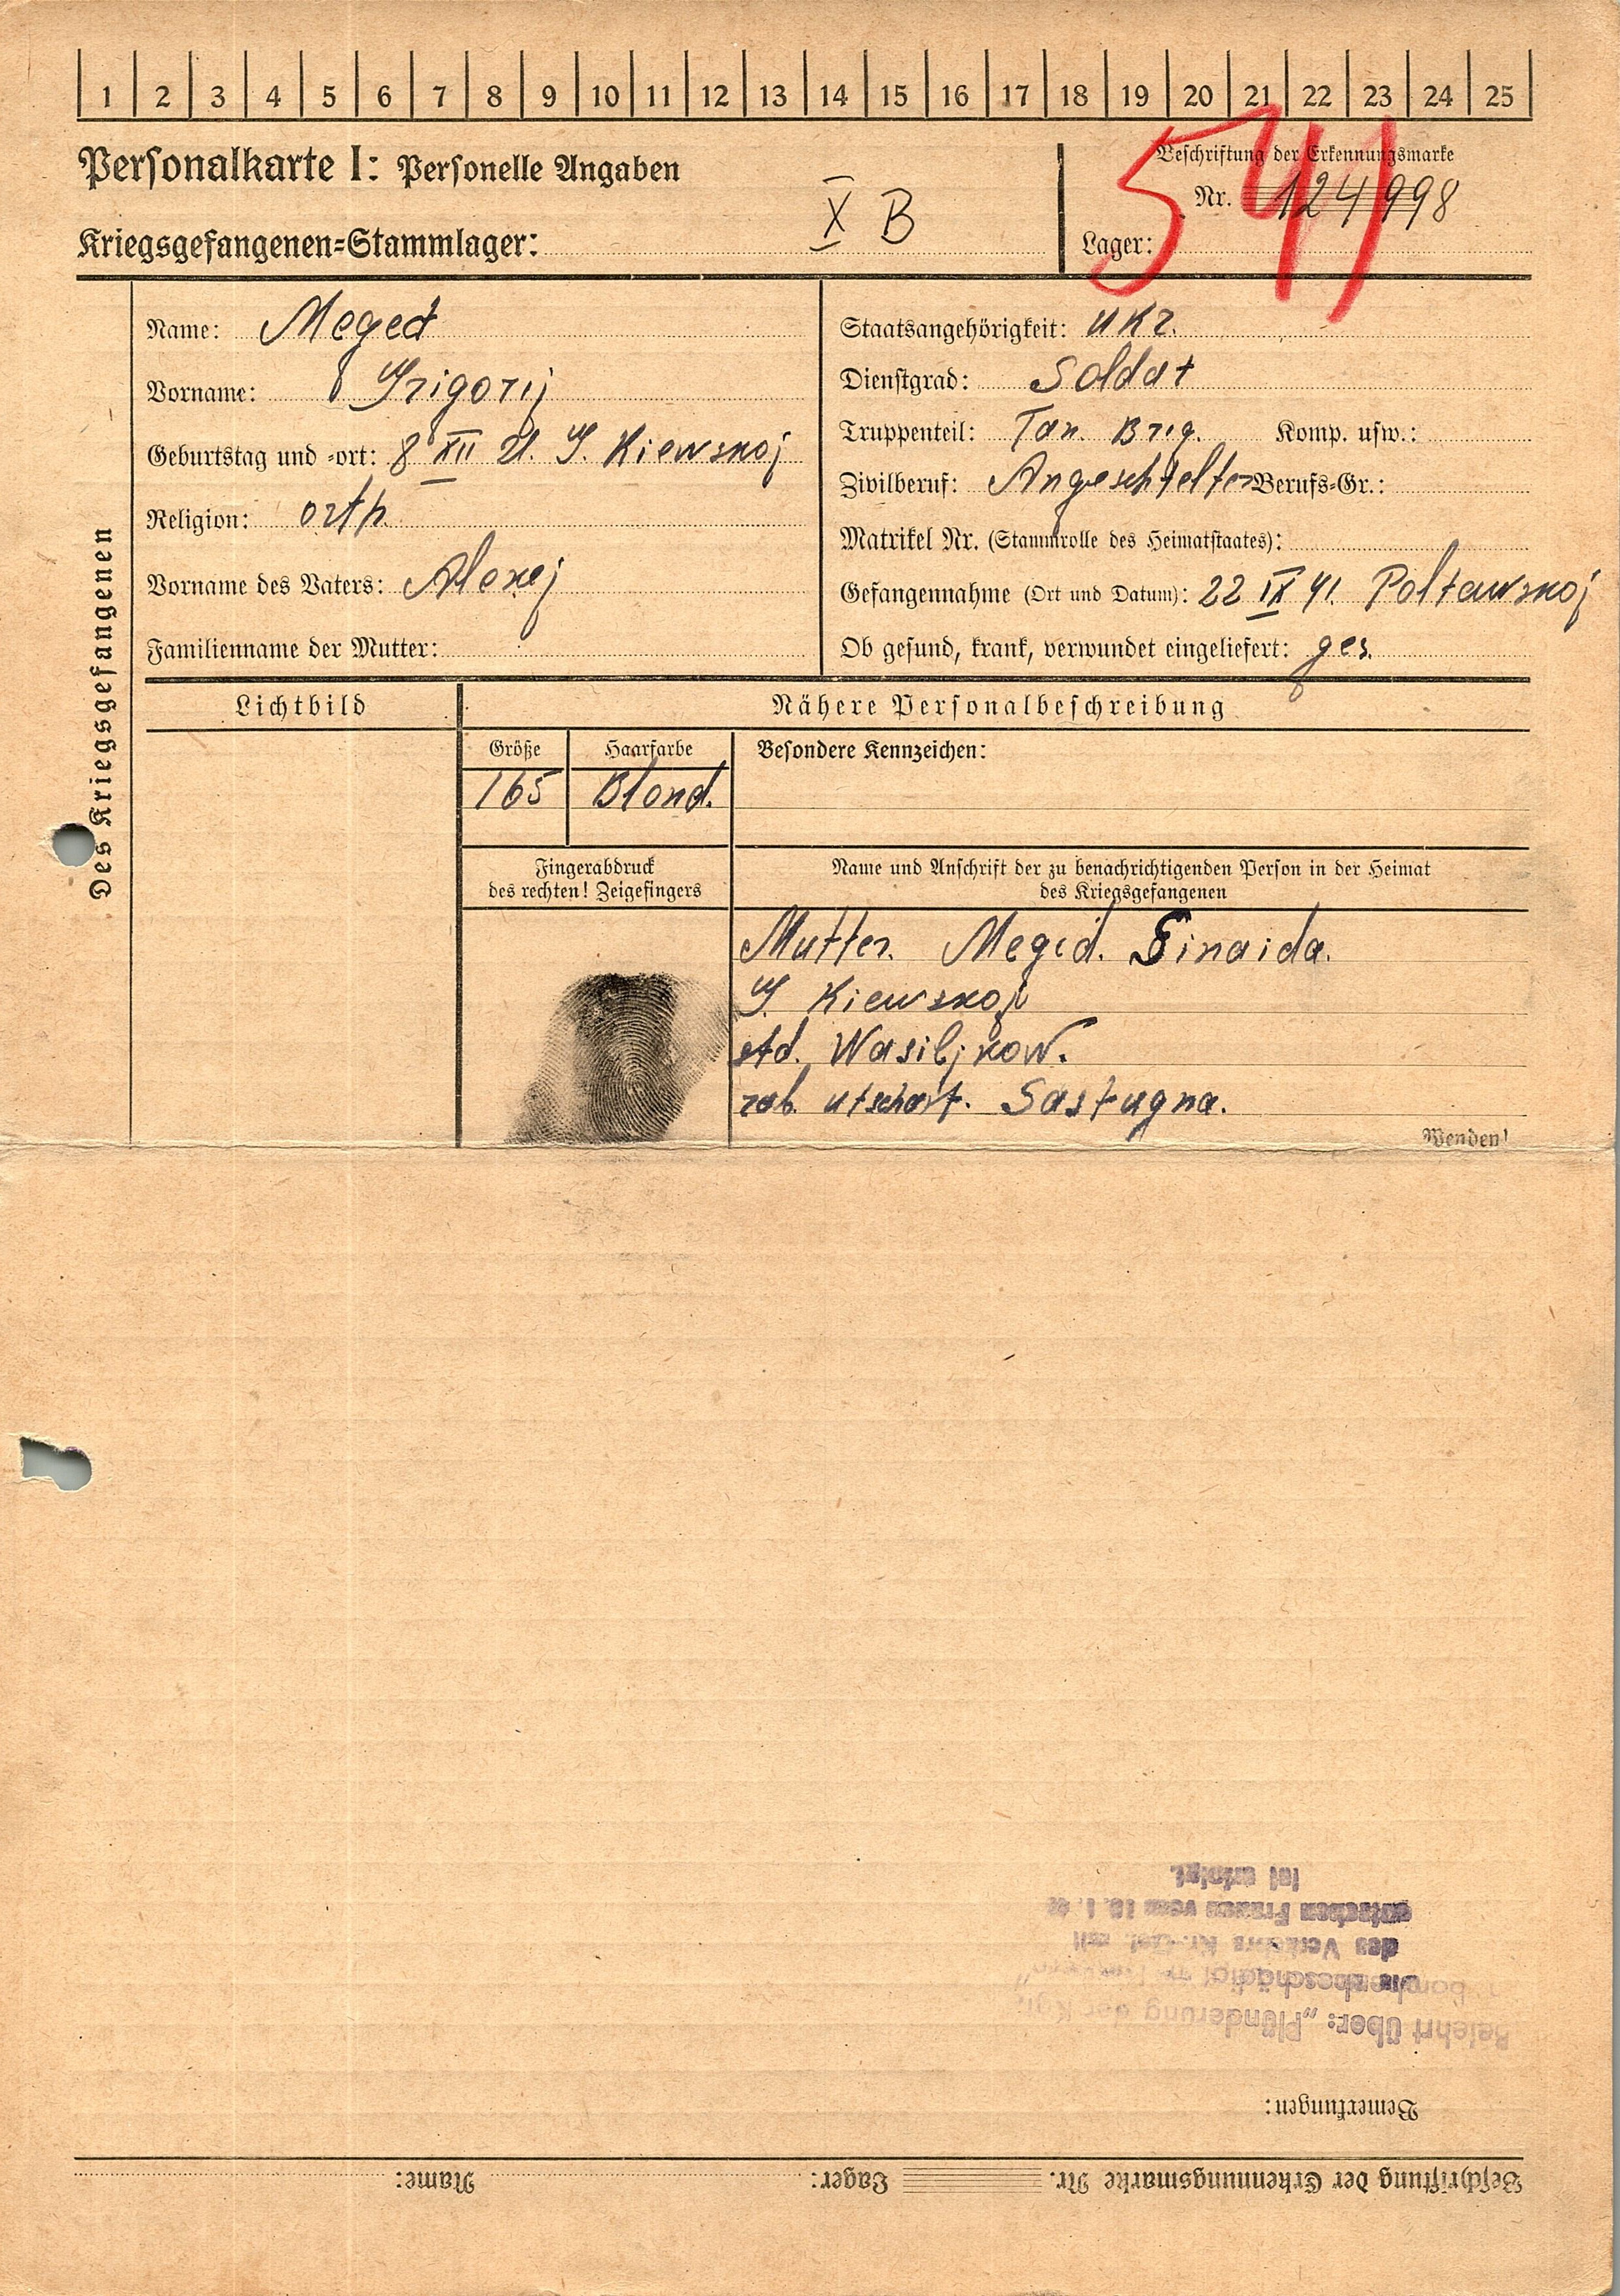 1 2 3 4 5 6 7 8 9 10 11 12 13 14 15 16 17 18 19 20 21 22 23 24 25
Personalkarte I: Personelle Angaben
Kriegsgefangenen=Stammlager: X B
Beschriftung der Erkennungsmarke
Nr. 124998
Lager:
541
Des Kriegsgefangenen
Name: Meged
Vorname: Grigorij
Geburtstag und =ort: 8 XII 21. G. Kiewskoj
Religion: orth.
Vorname des Vaters: Alexej
Familienname der Mutter:
Staatsangehörigkeit: ukr.
Dienstgrad: Soldat
Truppenteil: Tan. Brig. Komp. usw.:
Zivilberuf: Angeschtelter Berufs=Gr.:
Matrikel Nr. (Stammrolle des Heimatstaates):
Gefangennahme (Ort und Datum): 22 IX 41. Poltawskoj
Ob gesund, krank, verwundet eingeliefert: ges.
Lichtbild
Nähere Personalbeschreibung
Größe Haarfarbe Besondere Kennzeichen:
165 Blond.
Fingerabdruck
des rechten! Zeigefingers
Name und Anschrift der zu benachrichtigenden Person in der Heimat
des Kriegsgefangenen
Mutter. Meged. Sinaida.
G. Kiewskoj
std. Wasiljkow.
rab. utschast. Sastugna.
Wenden!
Beschriftung der Erkennungsmarke Nr. Lager: Name:
Bemerkungen:
Belehrt über: „Plünderung der Kgf.
des Verkehrs Kr.-Gef. mit
deutschen Frauen vom 10. 1. 42
ist erfolgt.